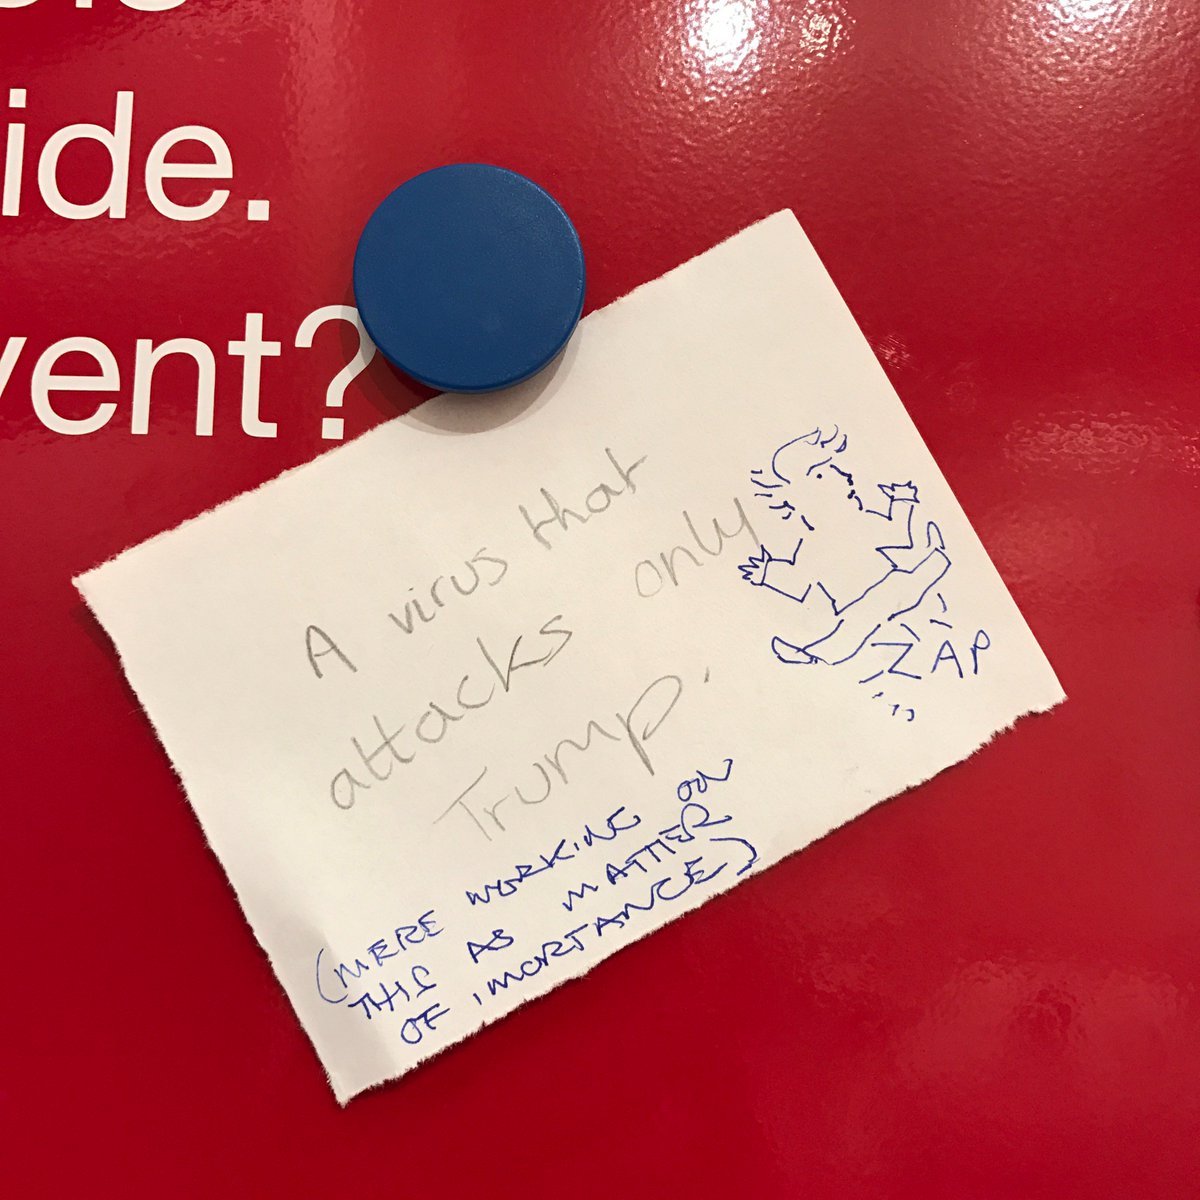 ide.
vent?
A virus that
attacks only
Trump.
ZAP
(WERE WORKING ON
THIS AS MATTER
OF IMORTANCE)